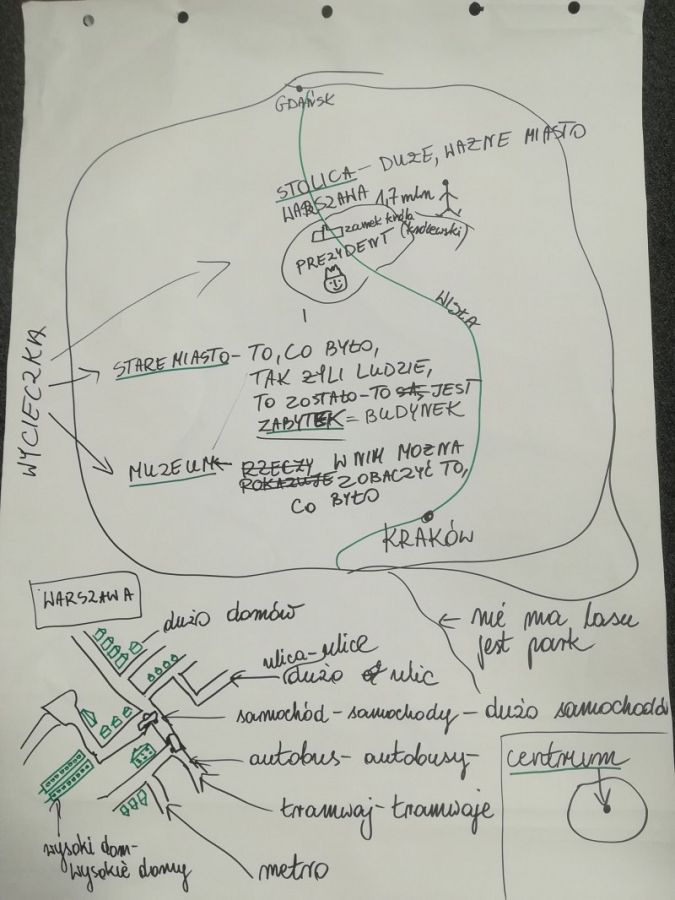 GDAŃSK
STOLICA - DUŻE, WAŻNE MIASTO
WARSZAWA 1,7 mln
zamek króla
(królewski)
PREZYDENT
WISŁA
WYCIECZKA
STARE MIASTO - TO, CO BYŁO,
TAK ŻYLI LUDZIE,
TO ZOSTAŁO - TO SĄ JEST
ZABYTEK = BUDYNEK
MUZEUM RZECZY W NIM MOŻNA
POKAZUJE ZOBACZYĆ TO,
CO BYŁO
KRAKÓW
WARSZAWA
dużo domów
ulica - ulice
dużo ulic
← nie ma lasu
jest park
samochód - samochody - dużo samochodów
autobus - autobusy -
tramwaj - tramwaje
metro
wysoki dom -
wysokie domy
centrum